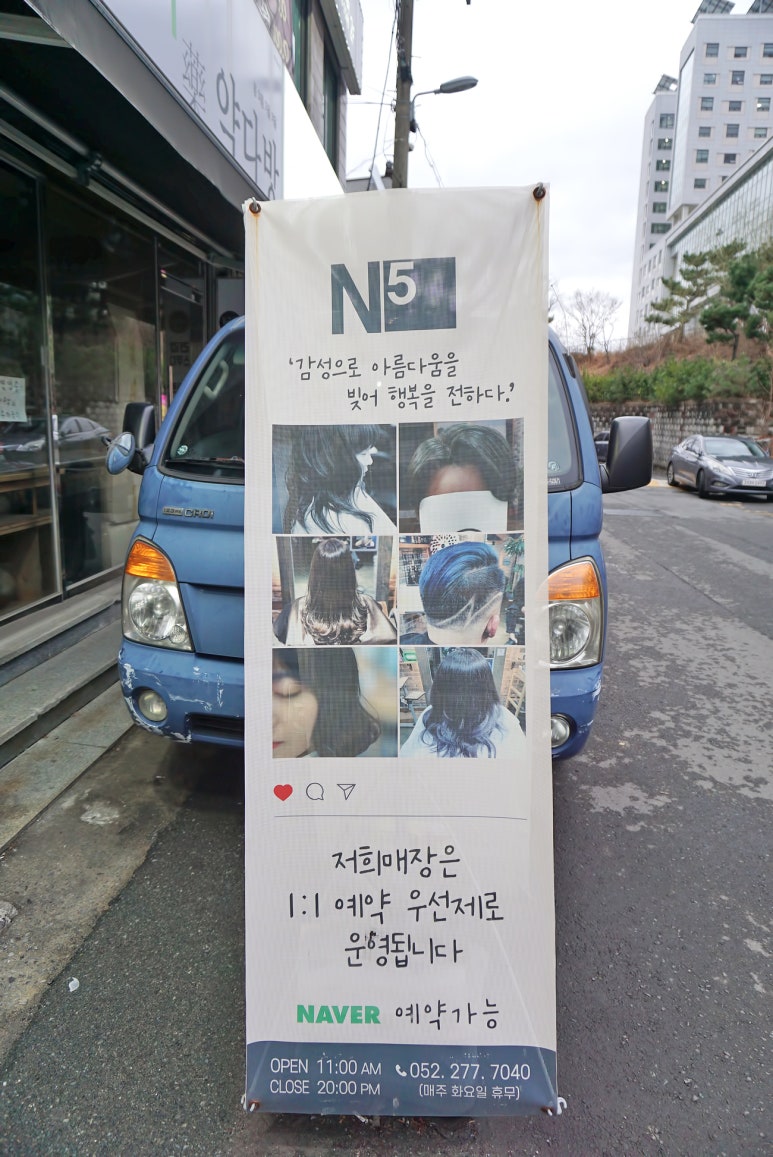 藥
약다방
N5
'감성으로 아름다움을
빚어 행복을 전하다.'
CRDi
저희매장은
1:1 예약 우선제로
운영됩니다
NAVER 예약가능
OPEN 11:00 AM
CLOSE 20:00 PM
052. 277. 7040
(매주 화요일 휴무)